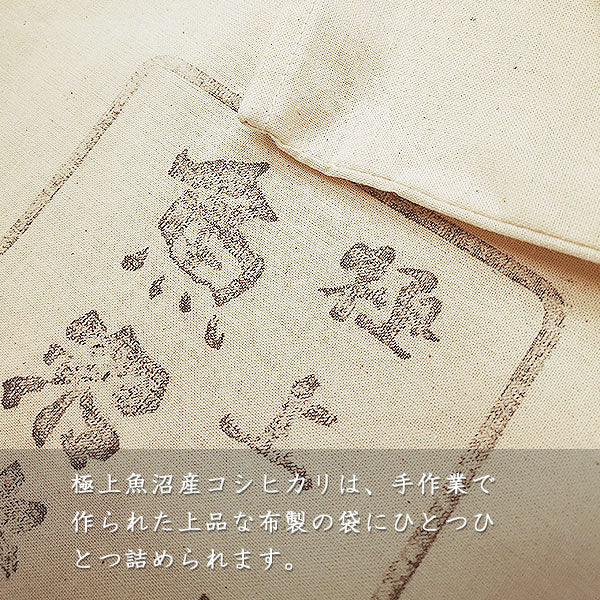 極上
魚沼
極上魚沼産コシヒカリは、手作業で
作られた上品な布製の袋にひとつひ
とつ詰められます。